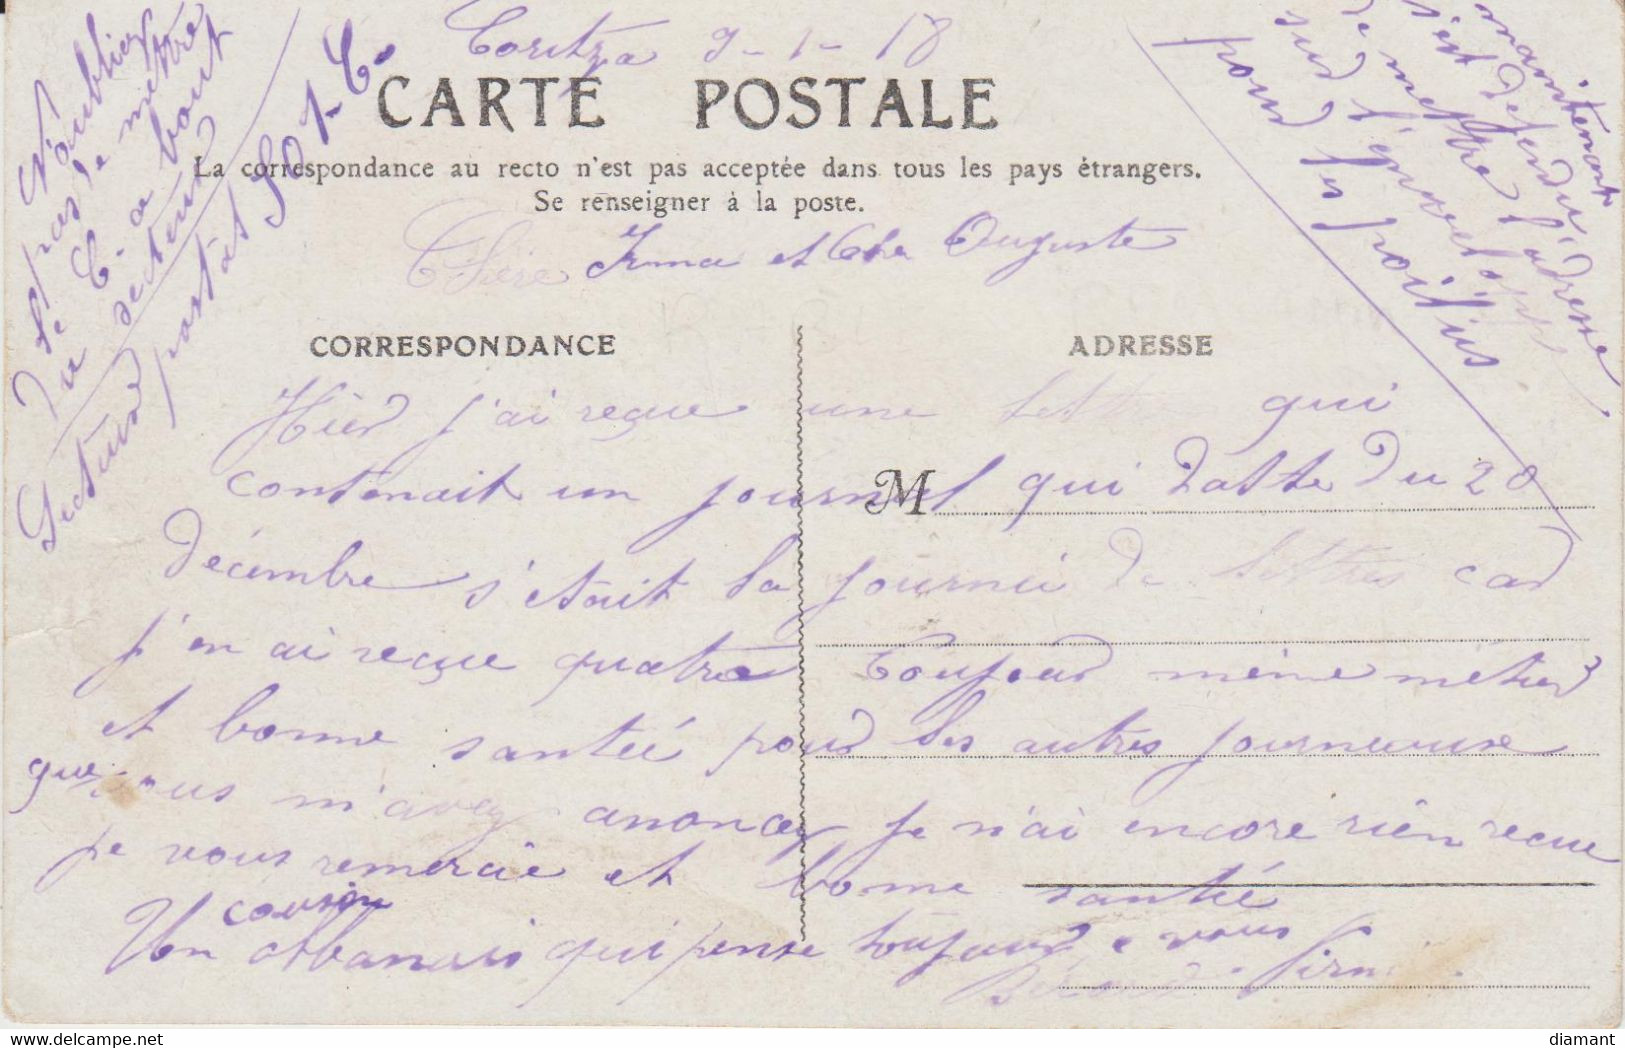 Coritza 9-1-18
CARTE POSTALE
La correspondance au recto n'est pas acceptée dans tous les pays étrangers.
Se renseigner à la poste.
Chère Irma et Cher Auguste
CORRESPONDANCE
ADRESSE
Hier j'ai reçue une lettre qui
contenait un journal qui datte du 20
M
décembre s'était la journée de lettres car
j'en ai reçue quatre toujour même métier
et bonne santée pour les autres
que vous m'avez anoncez je n'ai encore rien reçue
je vous remercie et bonne santée
Un cousin Albanais qui pense toujour a vous
N'oubliez
pas de mettre
le C. a bout
du secteur
Secteur
postal 507-C.
maintenant
s'est défendu
de mettre l'adresse
sur l'enveloppe
pour les poilius
diamant